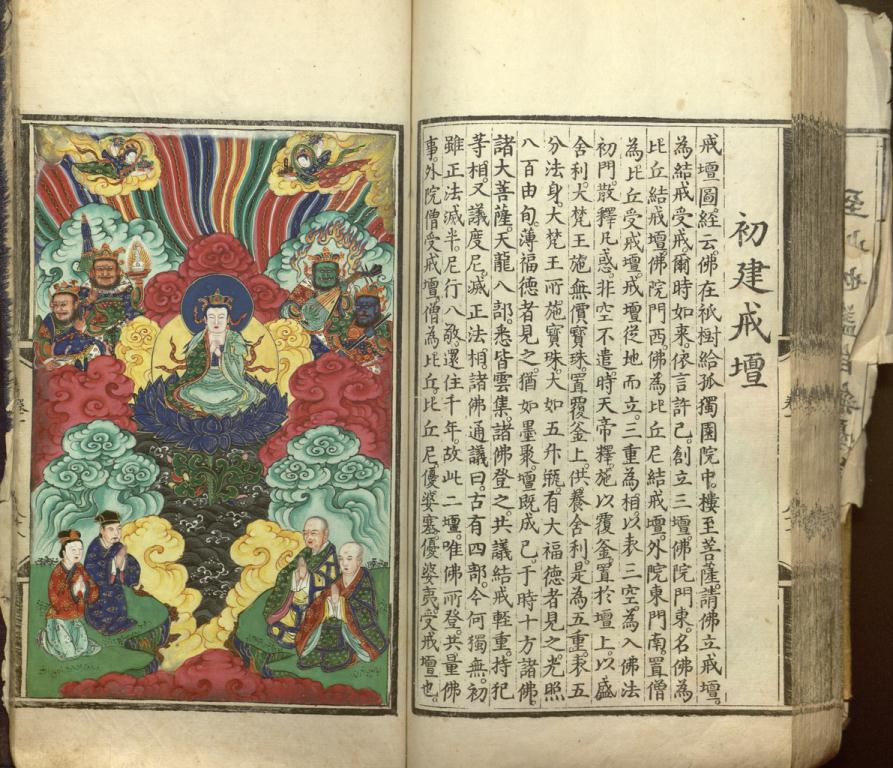 初建戒壇
戒壇圖經云。佛在祇樹給孤獨園院中。樓至菩薩。請佛立戒壇。
為結戒受戒爾時如來。依言許已。創立三壇。佛院門東。名佛為
比丘結戒壇。佛院門西。佛為比丘尼結戒壇。外院東門南。置僧
為比丘受戒壇。戒壇從地而立。三重為相。以表三空。為入佛法
初門。散釋凡惑。非空不遣。時天帝釋。施以覆釜。置於壇上。以盛
舍利。大梵王施無價寶珠。置覆釜上。供養舍利。是為五重。表五
分法身。大梵王所施寶珠。大如五升瓶。有大福德者見之。光照
八百由旬。薄福德者見之。猶如墨聚。壇既成已。于時十方諸佛。
諸大菩薩。天龍八部。悉皆雲集。諸佛登之。共議結戒輕重。持犯
等相。又議度尼。滅正法相。諸佛通議曰。古有四部。今何獨無。初
雖正法滅半。尼行八敬。還住千年。故此二壇。唯佛所登。共量佛
事。外院僧受戒壇。僧為比丘比丘尼。優婆塞。優婆夷。受戒壇也。